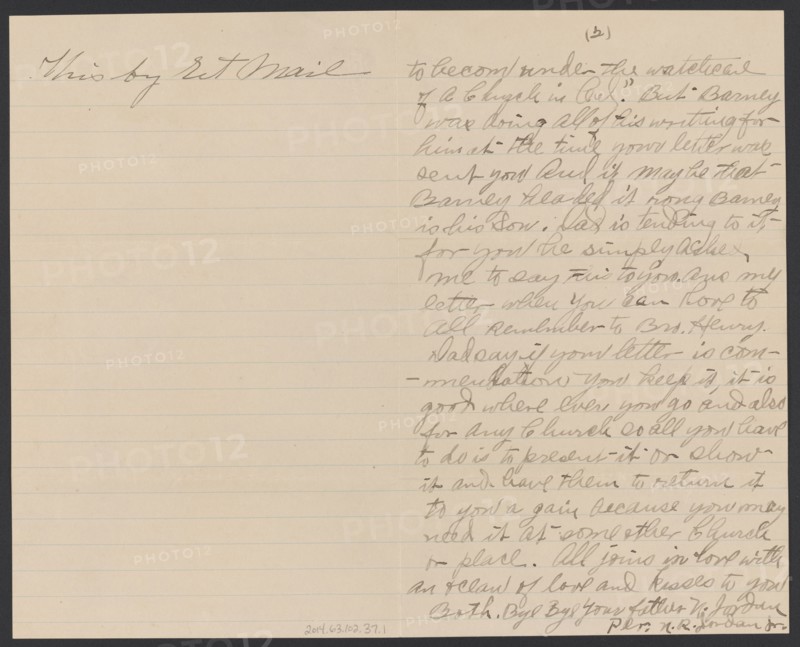 This by Ret Mail
(2)
to becom under the watchcare
of a Church in Cal." But Barney
was doing all of his writing for
him at the time your letter was
sent you and it may be that
Barney headed it rong Barney
is his Son. Dad is tending to it,
for you he simply askes
me to say this to you. Ans my
letter when you can love to
all remember to Bro. Henry.
Dad say if your letter is com-
-mendation you keep it, it is
good where ever you go and also
for any Church so all you have
to do is to present it or show
it and have them to return it
to you a gain because you may
need it at some other Church
or place. All joins in love with
an ocean of love and kisses to you
Both. Bye Bye Your father N. Jordan
Per. N. R. Jordan Jr.
2014.63.102.37.1
PHOTO12